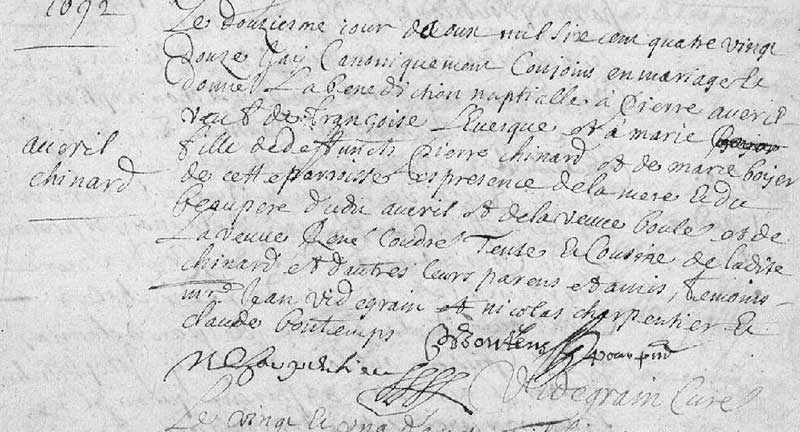 1692
Le douziesme jour de Joun mil six cent quatre vingt
douze j'ai Canoniquement Conjoins en mariage et
donné La benediction nuptialle à Pierre averil
veuf de françoise Levesque et à marie
averil
fille de deffuncts Pierre chinard et de marie boyer
chinard
de cette parroisse En presence de la mere et du
beaupere dudit averil et de la veuve boulé et de
La veuve René Coudré Tente et Cousine de ladite
chinard et d'autres leurs parens et amis, temoins
Jean videgrain et nicolas charpentier et
claude bontemps
Bontems
N Charpentier
Videgrain Curé
Le vingt et